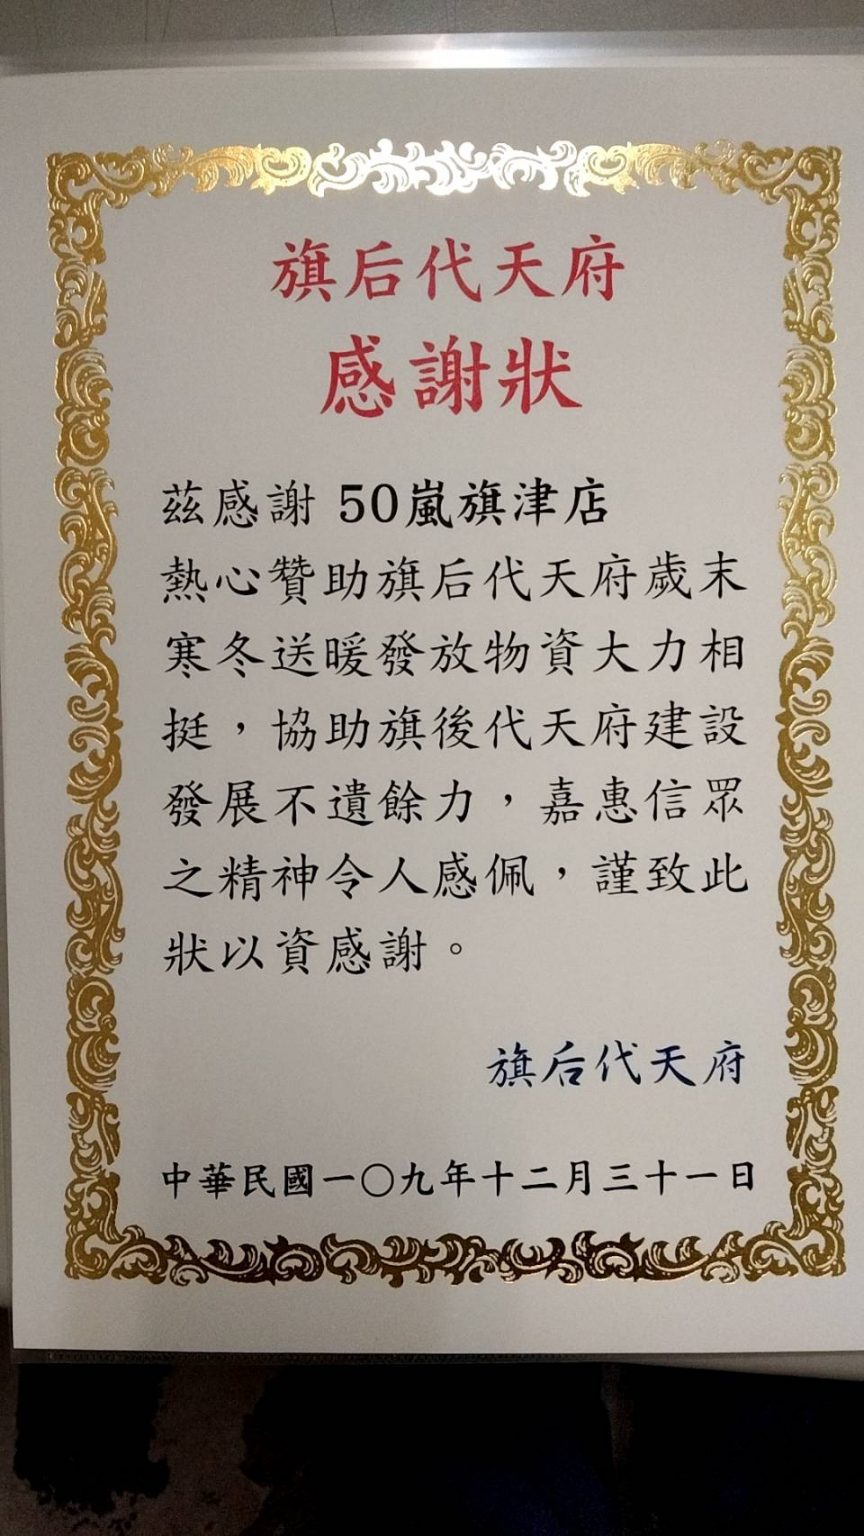 旗后代天府
感謝狀
茲感謝 50嵐旗津店
熱心贊助旗后代天府歲末
寒冬送暖發放物資大力相
挺，協助旗後代天府建設
發展不遺餘力，嘉惠信眾
之精神令人感佩，謹致此
狀以資感謝。
旗后代天府
中華民國一〇九年十二月三十一日